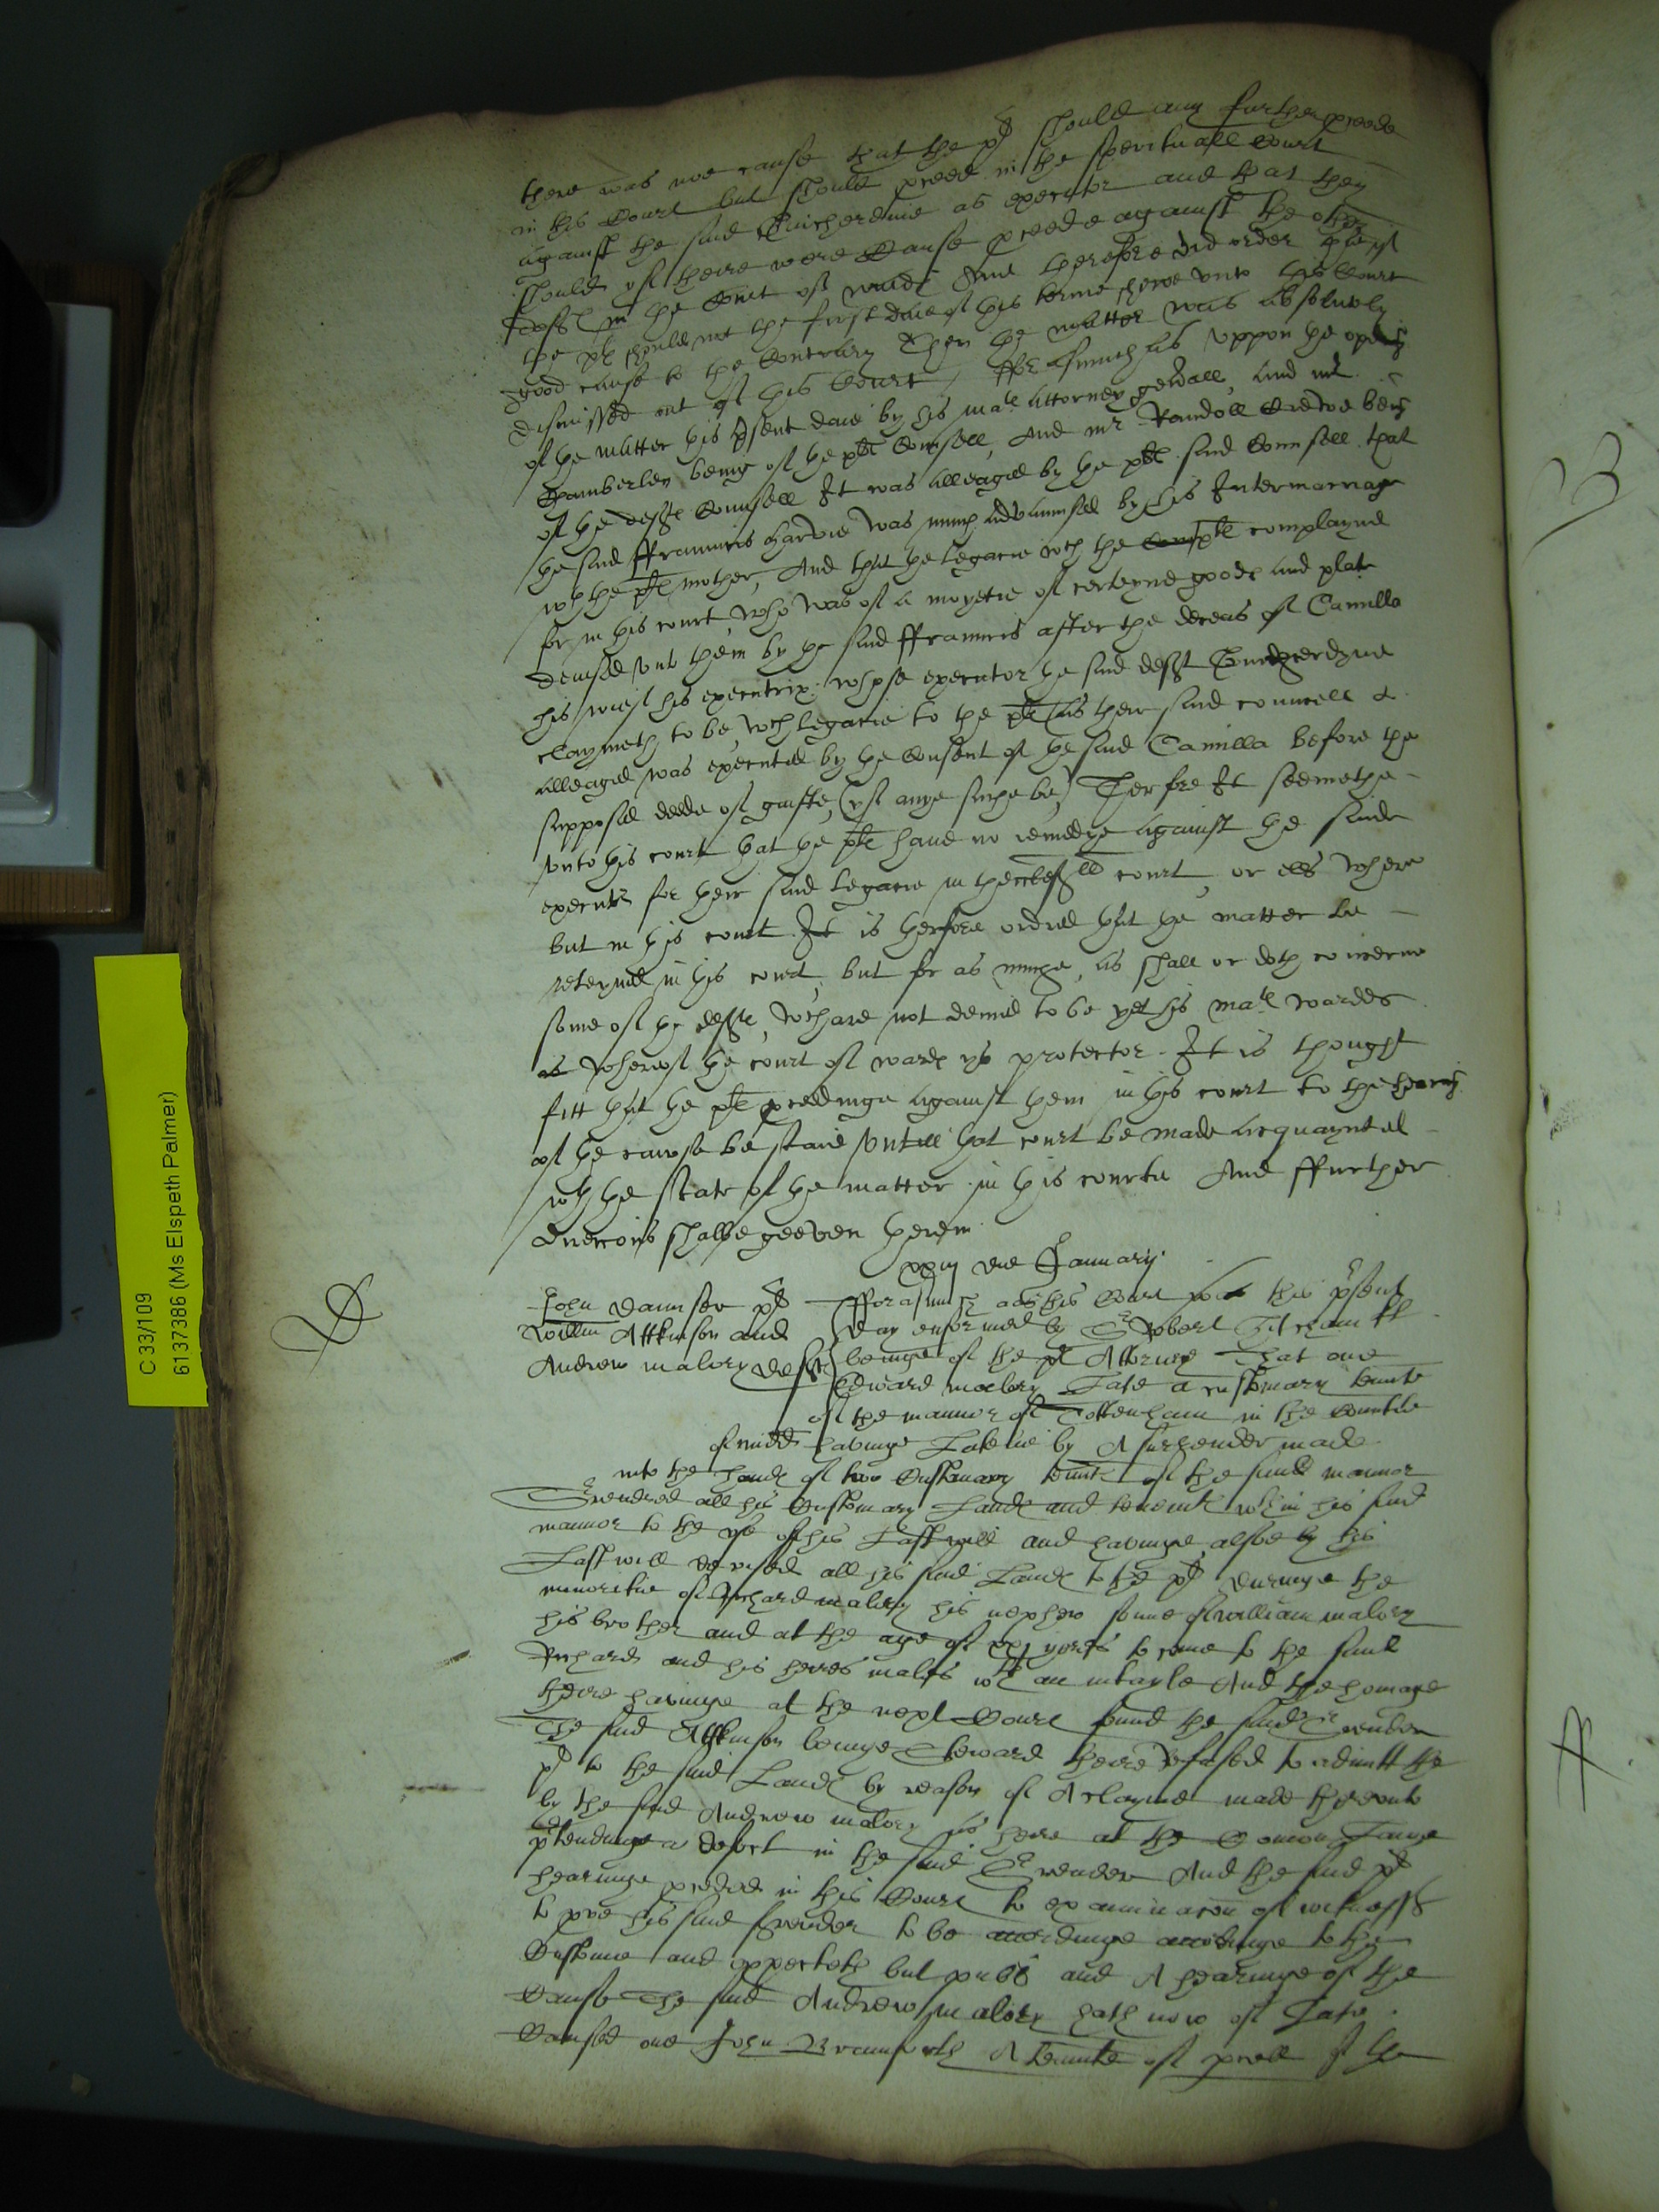 there was noe cause that the pl should any further proceede
in this Court but should proceede in the spirituall Court
against the said as executor and that they
should yf there were Cause proceede against the other
defts in the Court of wards And therefore did order that yf
the pl should not the first daie of this terme shewe unto this Court
good cause to the Contrary Then the matter was absolutely
dismissed out of this Court / ffor asmuch as uppon the openinge
of the matter this psent daie by his mats Attorney gerall, and mr
Chamberlen being of the pltes Counsell, And mr Randoll Crewe being
of the defts Counsell It was alleaged by the pltes said Counsell that
the said ffrauncis Harvie was much advaunsed by his Intermarriage
wth the pltes mother, And that the Legacie wch the plte complayned
for in this court, who was of a moyetie of certeyne goods and plate
devised unto them by the said ffrauncis after the deceas of Camilla
his wief his executrix: whose executor the said deft
claymeth to be, wch Legacie to the plte (as their said councell
alleaged was executed by the Consent of the said Camilla before the
supposed deede of guifte, (yf anye suche be) Therfore It seemethe
unto this court that the plte have no remedye against the said
executor for their said Legacie in court or ells where
but in this court. It is therfore ordred that the matter be
reteyned in this court, but for as muche, as shall or doth concerne
some of the defts, wch are not denied to be yet his mats wardes
wherof the court of wards ys protector. It is thought
fitt that the plte proceedinge against them in this court to the hearing
of the cawse be staied untill that court be made acquaynted
wth the state of the matter in this courte And ffurther
direccions shalbe geeven herein
xxiij die January
John Dauncer pl
Willm Attkinson and
Andrew malory defts
fforasmuch as this Court was this psent
day enformed by Sr Robert Titcham kt
beinge of the pl Attorney That one
Edward malory Late a customary tennte
of the mannor of Tottenham in the Countie
of midd havinge Late by A surrender made
into the hands of two Customary tennts of the said mannor
Srendred all his Customary Lands and tenemts wthin his said
mannor to the use of his Last will and havinge alsoe by his
Last will devised all his said Lands to the pl duringe the
minoritie of Richard malory his nephew sonne of william malory
his brother and at the age of xxj yeres to come to the said
Richard and his heires males wth an intayle And the homage
there havinge at the next Court found the said Srender
The said Attkinson beinge Steward there refused to admitt the
pl to the said Lands by reason of A clayme made thereunto
by the said Andrew malory as heire at the Comon Lawe
ptendinge a defect in the said Srender And the said pl
havinge proceded in this Court to examinacon of witnesses
to prove his said Srender to be accordinge to the
Custome and expecteth but publ and A hearinge of the
Cause The said Andrew malory hath now of Late
Caused one John A tennte of pcell of the
C 33/109
6137386 (Ms Elspeth Palmer)